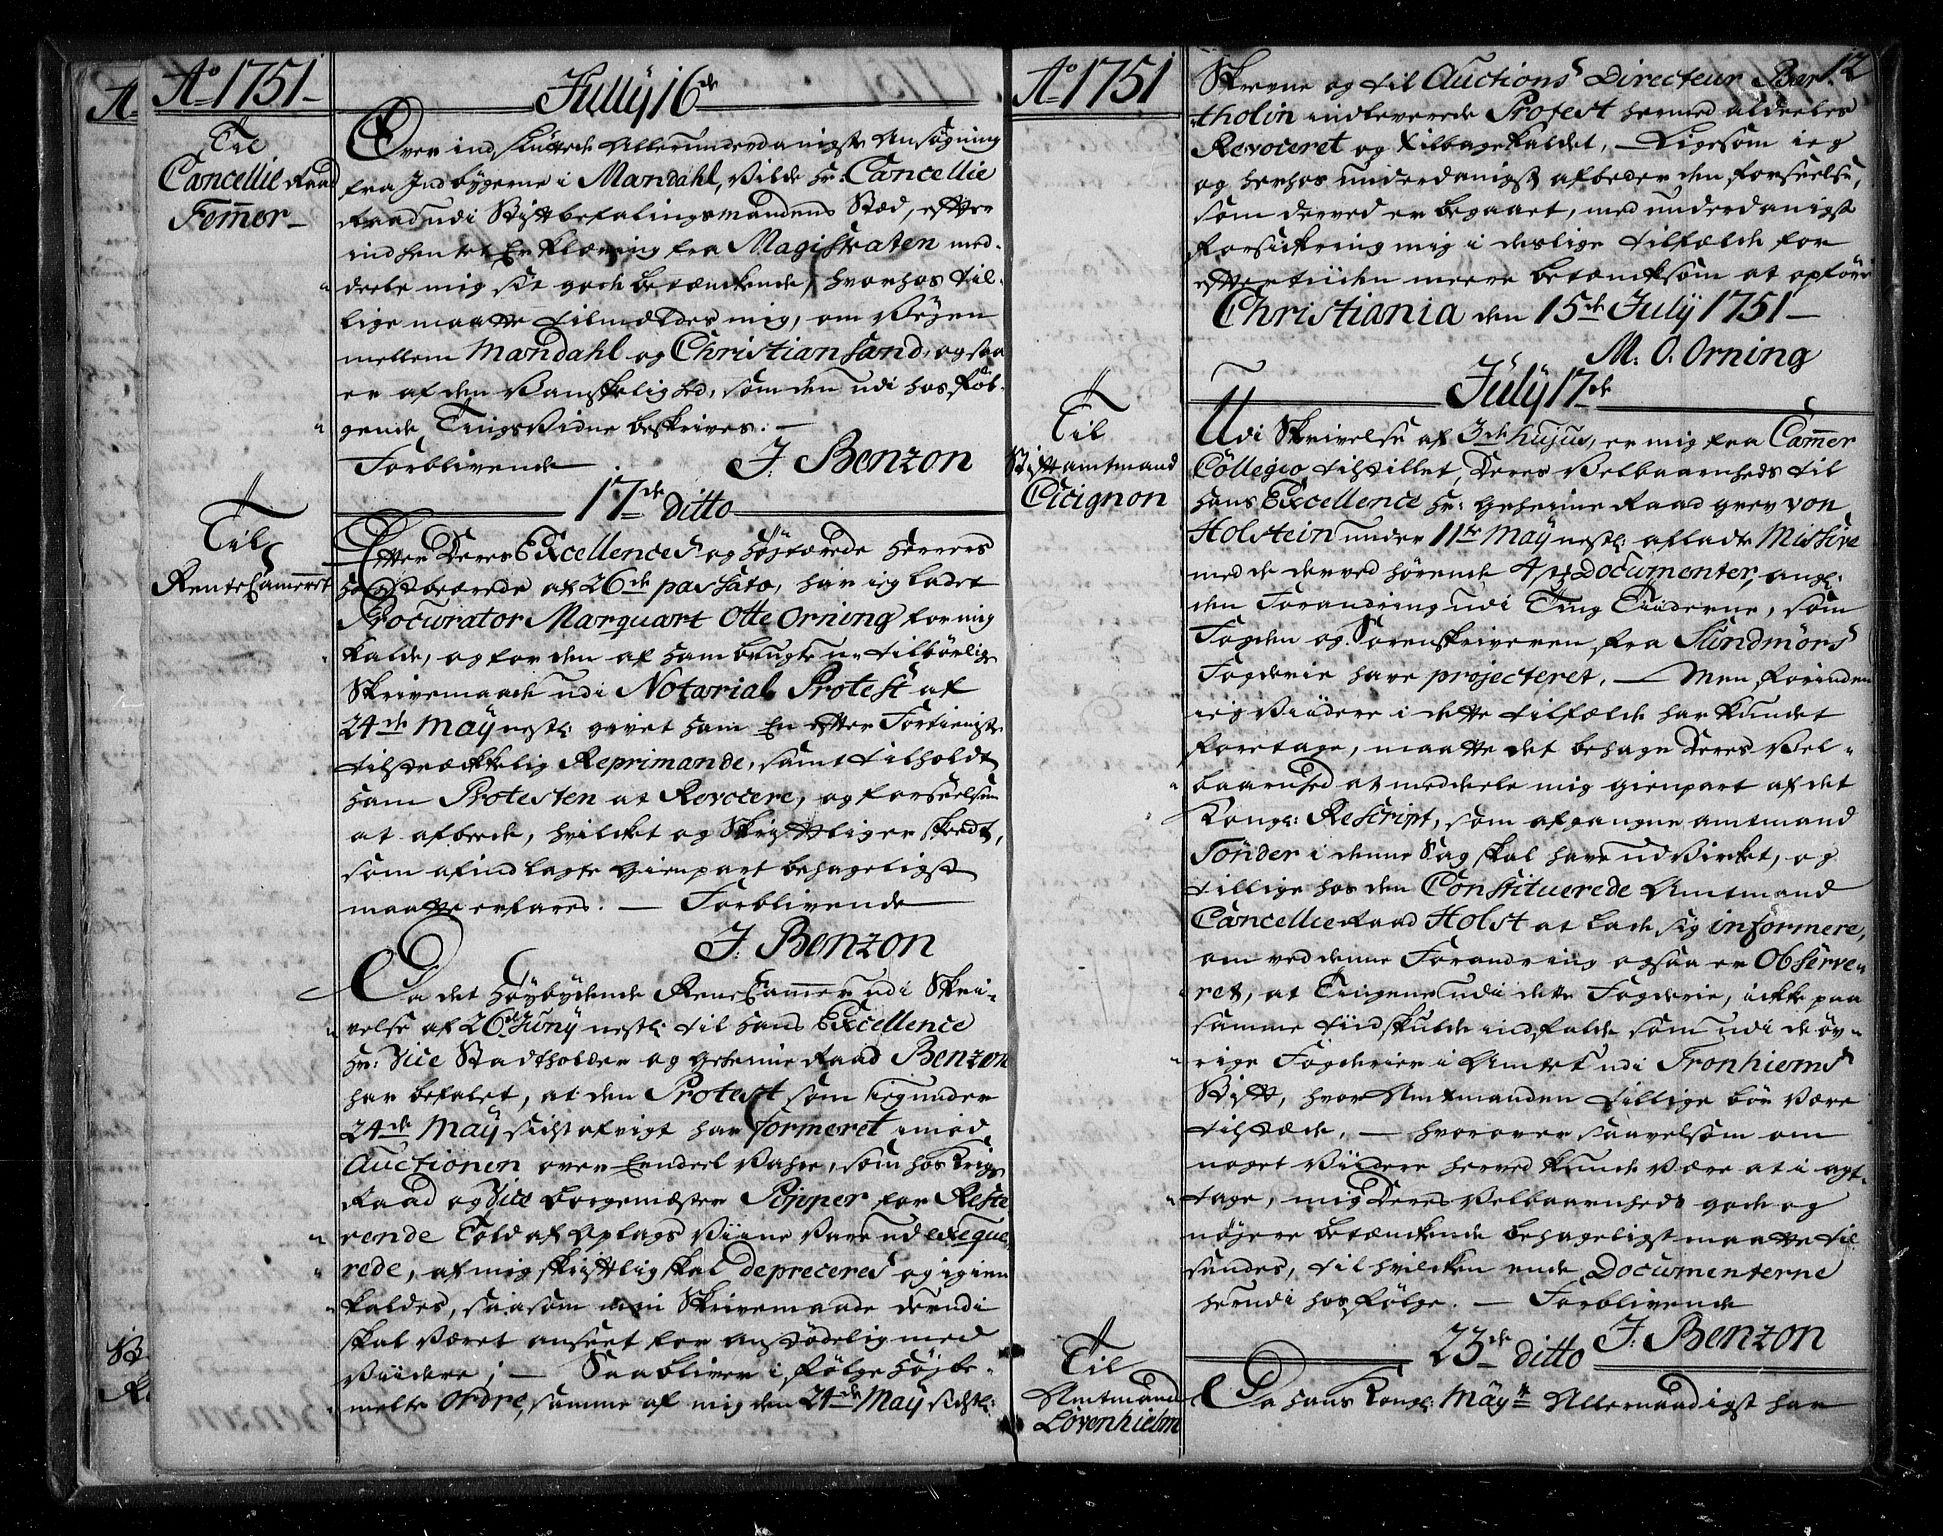 Ao 1751
July 16de
Til
Cancellie Raad
Femmer
Over indsluttede Allerunderdanigste Ansøgning
fra Indbygerne i Mandahl, Vilde Hr: Cancellie
Raad udi Stiftbefalingsmandens Stæd, efter
indhentet Erklæring fra Magistraten med-
deele mig sit gode betænckende, hvorhos til-
lige maatte tilmældes mig, om Veyen
mellem Mandahl og Christiansand, ogsaa
er af den Vanskelighed, som den udi hosføl-
gende Tingsvidne beskrives. —
Forblivende J. Benzon
17de ditto
Til
RenteCammeret
Efter Deres Excellences og Højtærede Herrers
beærede af 26de passato, har ieg ladet
Procurator Marquart Otte Orning for mig
kalde, og for den af ham brugte utilbørlige
Skrivemaade udi Notarial Protest af
24de May nestl: givet ham En efter Fortieniste
tilstræckkelig Reprimande, samt tilholdt
ham Protesten at Revocere, og forseelsen
at afbede, hvilcket og Skriftligen skedt,
som af indlagte Gienpart behageligst
maatte erfares. — Forblivende
J. Benzon
Da det Høybydende RenteCammer udi Skri-
velse af 26de Juny nestl: til Hans Excellence
Hr: Vice Stadtholder og Geheime Raad Benzon
har befalet, at den Protest som ieg under
24de May sidst afvigt har formeret imod
Auctionen over Eendeel Vahre, som hos Krigs
Raad og Vice Borgemæster Pøpper for Reste-
rende Told af Oplags Viine Vare udexeque-
rede, af mig skriftlig skal depreceres og igien
kaldes, saasom min Skrivemaade derudi
skal Været anseet for anstødelig med
Viidere; — Saa bliver i følge Højbe-
melte Ordre, samme af mig den 24de May sidstl:
Ao 1751
12
Skrevne og til Auctions Directeur Bar-
tholin indleverede Protest hermed aldeeles
Revoceret og tilbagekaldet, — Ligesom ieg
og herhos underdanigst afbeder den forseelse,
som derved er begaaet, med underdanigst
forsickring mig i deslige tilfælde for
eftertiiden meere betæncksom at opføre
Christiania den 15de July 1751 —
M. O. Orning
July 17de
Til
Stiftamtmand
Cicignon
Udi Skrivelse af 3de hujus, er mig fra Cammer
Collegio tilstillet, Deres Velbaarenheds til
Hans Excellence Hr: Geheime Raad Grev von
Holstein under 11te May nestl: afladte Missive
med de derved hørende 4 st: Documenter, ang:
den Forandring udi Ting Tiiderne, som
Fogden og Sorenskriveren fra Sundmørs
Fogderie have projecteret. — Men forinden
ieg Viidere i dette tilfælde har kundet
foretage, maatte det behage Deres Vel-
baarenhed at meddeele mig Gienpart af det
Kongl: Rescript, som afgangne Amtmand
Tønder i denne Sag skal have udvirket, og
tillige hos den Constituerede Amtmand
Cancellie Raad Holst at lade sig informere,
om ved denne Forandring ogsaa er Observe-
ret, at Tingene udi dette Fogderie, icke paa
samme tiid skulde indfalde som udi de øv-
rige Fogderier i Amtet udi Tronhiems
Stift, hvor Amtmanden tillige bør Være
tilstæde, — hvorover saavelsom om
noget Viidere herved kunde Være at i agt-
tage, mig Deres Velbaarenheds gode og
nøyere betænckende behageligst maatte til-
sendes, til hvilcken ende Documenterne
herudi hos følge. — Forblivende
J. Benzon
23de ditto
Til
Amtmand
Lovenhielm
Da Hans Kongl: Mayts Allernaadigst har